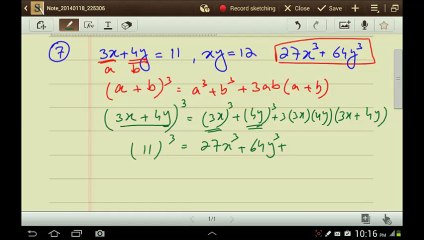 Note_20140118_226306
Record sketching
⑦ 3x+4y = 11 , xy = 12 27x³+ 64y³
a b
(a + b)³ = a³+b³ + 3ab (a+b)
(3x + 4y)³ = (3x)³ + (4y)³ + 3(3x)(4y)(3x + 4y)
(11)³ = 27x³ + 64y³ +
1/1
10:16 PM